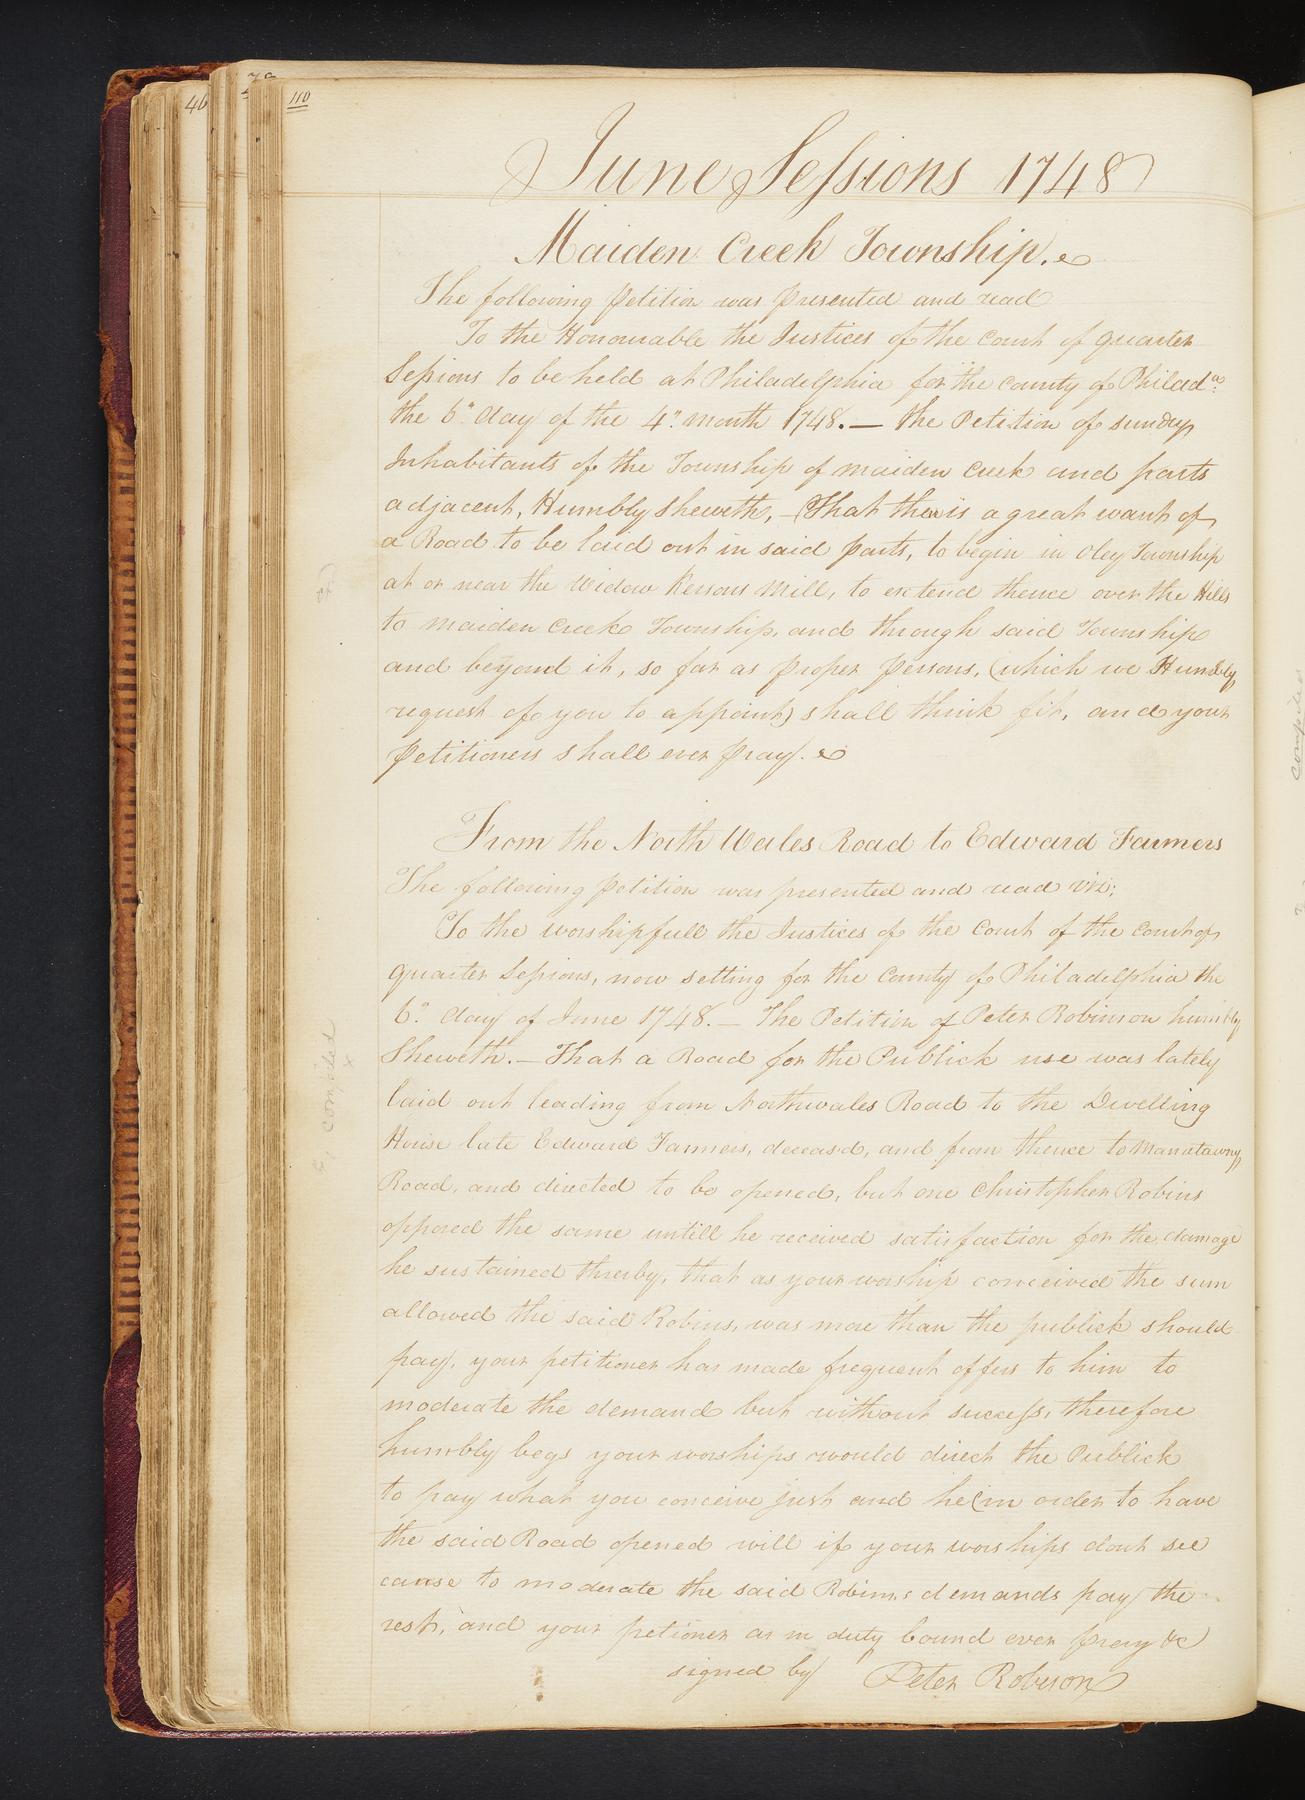 46
110
June Sessions 1748
Maiden Creek Township.
The following Petition was Presented and read
To the Honourable the Justices of the Court of quarter
Sessions to be held at Philadelphia for the County of Philad.a
the 6.th day of the 4.th month 1748. — the Petition of sundry
Inhabitants of the Township of maiden Creek and parts
adjacent, Humbly Sheweth, — That there is a great want of
a Road to be laid out in said parts, to begin in Oley Township
at or near the Widow Kersons Mill, to extend thence over the Hills
to maiden Creek Township, and through said Township
and beyond it, so far as proper persons, (which we Humbly
request of you to appoint) shall think fit, and your
petitioners shall ever pray.
From the North Wales Road to Edward Farmers
The following petition was presented and read viz;
To the worshipfull the Justices of the Court of the Court of
quarter Sessions, now setting for the County of Philadelphia the
6.th day of June 1748. — The Petition of Peter Robinson humbly
Sheweth. — That a Road for the Publick use was lately
laid out leading from Northwales Road to the Dwelling
House late Edward Farmers, deceasd, and from thence to Manatawny
Road, and directed to be opened, but one Christopher Robins
opposed the same untill he received satisfaction for the damage
he sustained thereby, that as your worship conceived the sum
allowed the said Robins, was more than the publick should
pay, your petitioner has made frequent offers to him to
moderate the demand but without success, therefore
humbly begs your worships would direct the Publick
to pay what you conceive just and he (in order to have
the said Road opened will if your worships dont see
cause to moderate the said Robins demands pay the
rest, and your petioner as in duty bound ever pray &c
signed by Peter Robeson
compiled
compiled